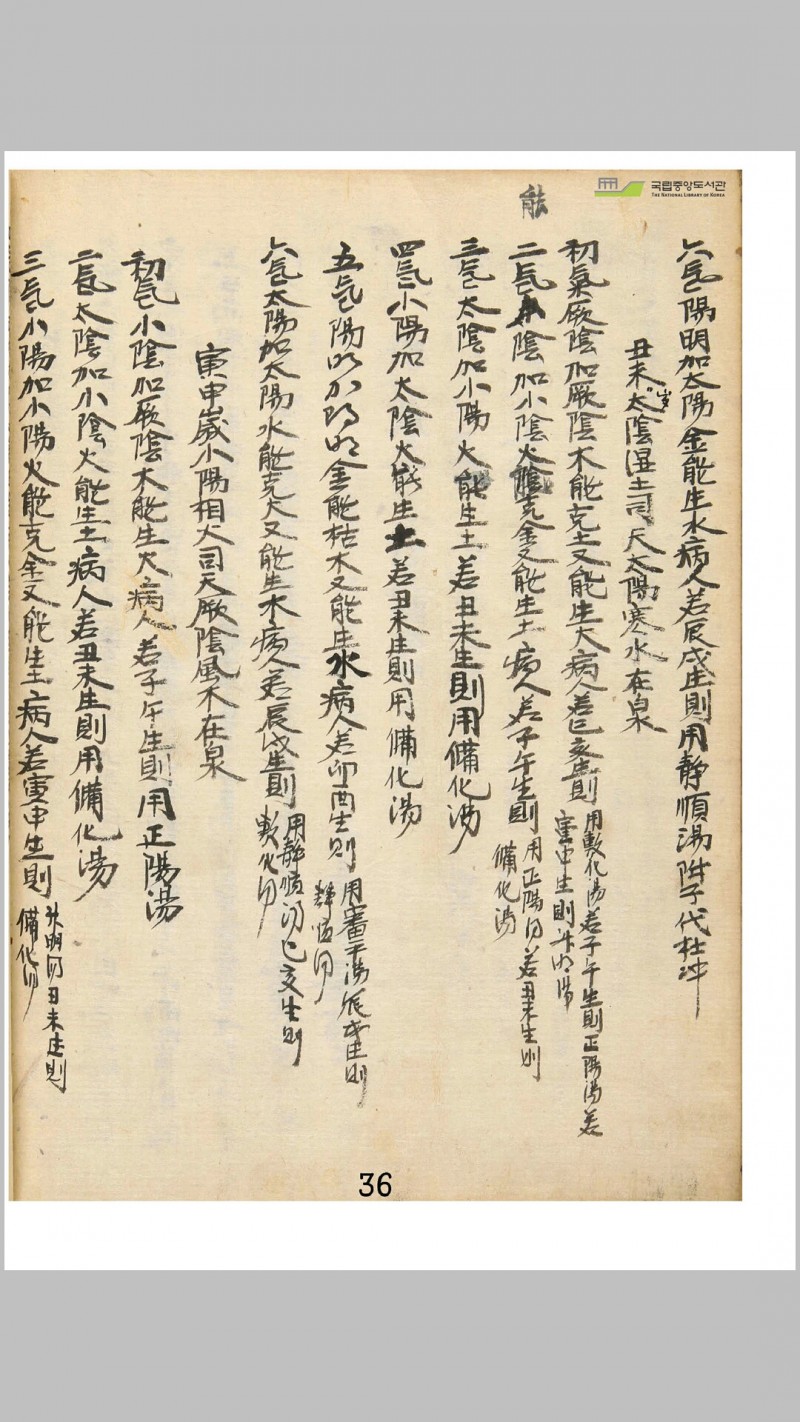 국립중앙도서관
THE NATIONAL LIBRARY OF KOREA
六气陽明加太陽金能生水病人若辰戌生則用静順湯附子代杜冲
丑未歲太陰湿土司天太陽寒水在泉
初氣厥陰加厥陰木能克土又能生火病人若巳亥生則
用敷化湯若子午生則正陽湯若
寅申生則升明湯
能
二气小陰加小陰火能克金又能生土病人若子午生則
用正陽湯若丑未生則
備化湯
三气太陰加小陽火能生土若丑未生則用備化湯
四气小陽加太陰火能生土若丑未生則用備化湯
五气陽明加陽明金能枯木又能生水病人若卯酉生則
用審平湯辰戌生則
静順湯
六气太陽加太陽水能克火又能生木病人若辰戌生則
用静順湯巳亥生則
敷化湯
寅申歲小陽相火司天厥陰風木在泉
初气小陰加厥陰木能生火病人若子午生則用正陽湯
二气太陰加小陰火能生土病人若丑未生則用備化湯
三气小陽加小陽火能克金又能生土病人若寅申生則
升明湯丑未生則
備化湯
36